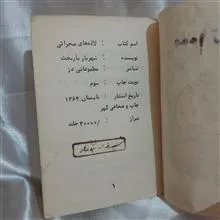 اسم کتاب : لاله‌های صحرائی
نویسنده : شهریار باریخت
ناشر : مطبوعاتی دز
نوبت چاپ : سوم
تاریخ انتشار : تابستان ۱۳۶۴
چاپ و صحافی گهر
تیراژ : ۲۰۰۰۰ جلد
۱